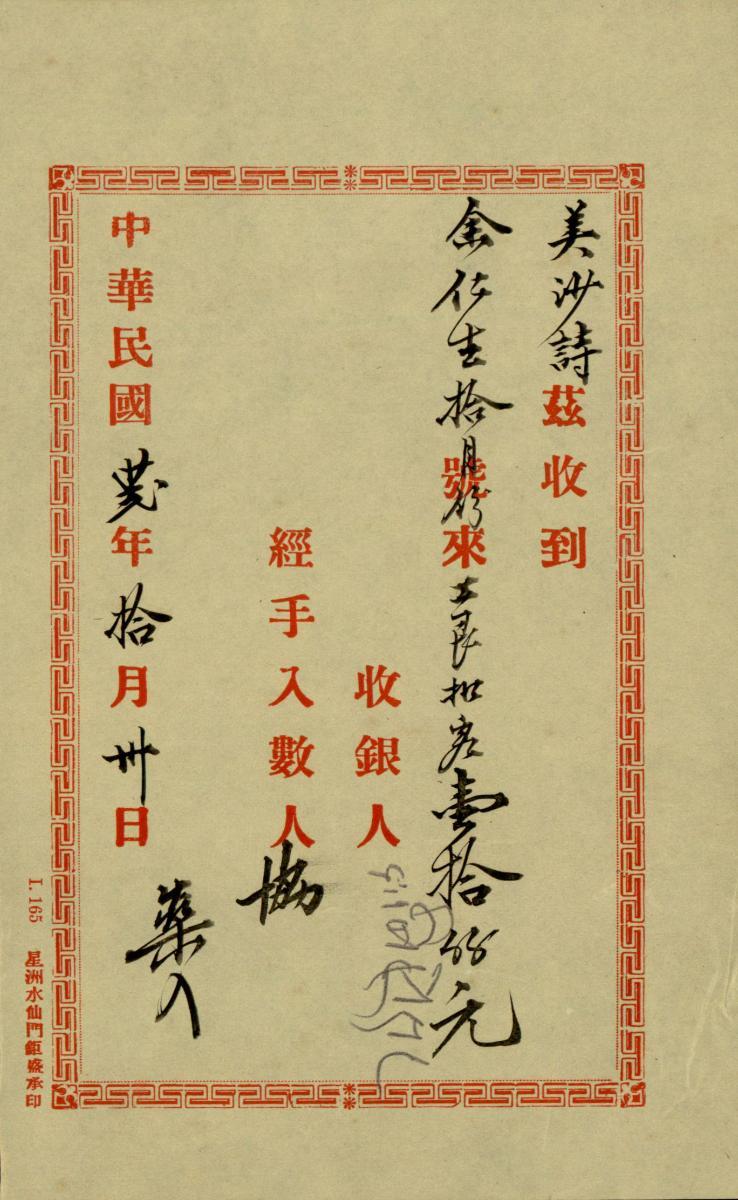 美沙詩茲收到
余仁生拾月份號來工艮扣完壹拾元
收銀人
經手入數人 協
中華民國 年拾月卅日
藥入
L. 165 星洲水仙門鉅盛承印